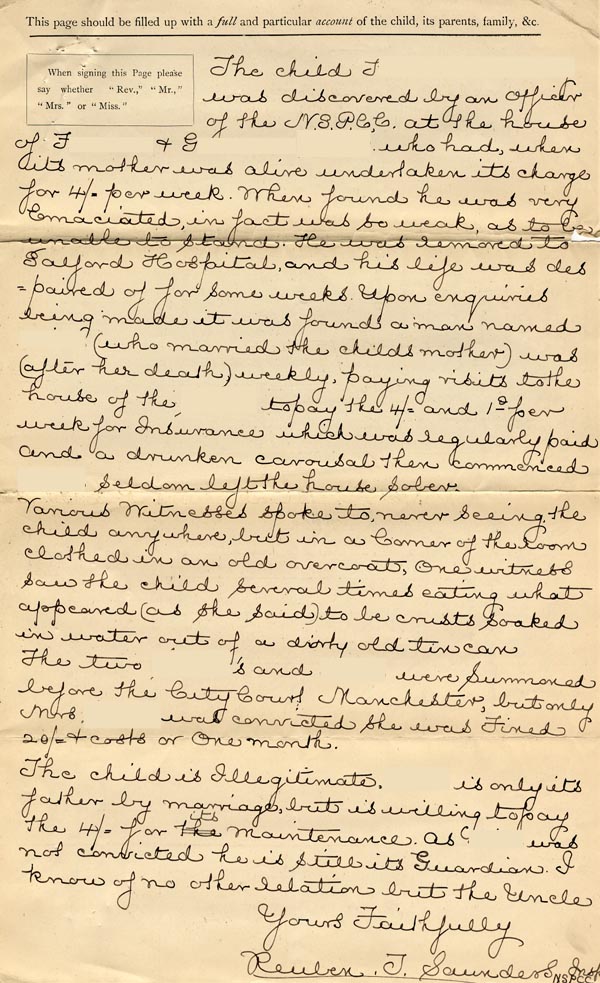 This page should be filled up with a full and particular account of the child, its parents, family, &c.
When signing this Page please
say whether "Rev.," "Mr.,"
"Mrs." or "Miss."
The child T
was discovered by an Officer
of the N.S.P.C.C. at the house
of F & G who had, when
its mother was alive undertaken its charge
for 4/- per week. When found he was very
Emaciated, in fact was so weak, as to be
unable to stand. He was removed to
Salford Hospital, and his life was des
=paired of for some weeks. Upon enquiries
being made it was found a man named
(who married the childs mother) was
(after her death) weekly, paying visits to the
house of the to pay the 4/- and 1d per
week for Insurance which was regularly paid
and a drunken carousal then commenced
seldom left the house sober.
Various Witnesses spoke to, never seeing the
child anywhere, but in a Corner of the room
clothed in an old overcoat, One witness
saw the child several times eating what
appeared (as she said) to be crusts soaked
in water out of a dirty old tin can
The two 's and were Summoned
before the City Court Manchester, but only
Mrs. was convicted she was Fined
20/- & costs or One month.
The child is Illegitimate. is only its
father by marriage, but is willing to pay
the 4/- for the its Maintenance. As was
not convicted he is still its Guardian. I
know of no other relation but the Uncle
Yours Faithfully
Reuben. T. Saunders Insp
NSPCC